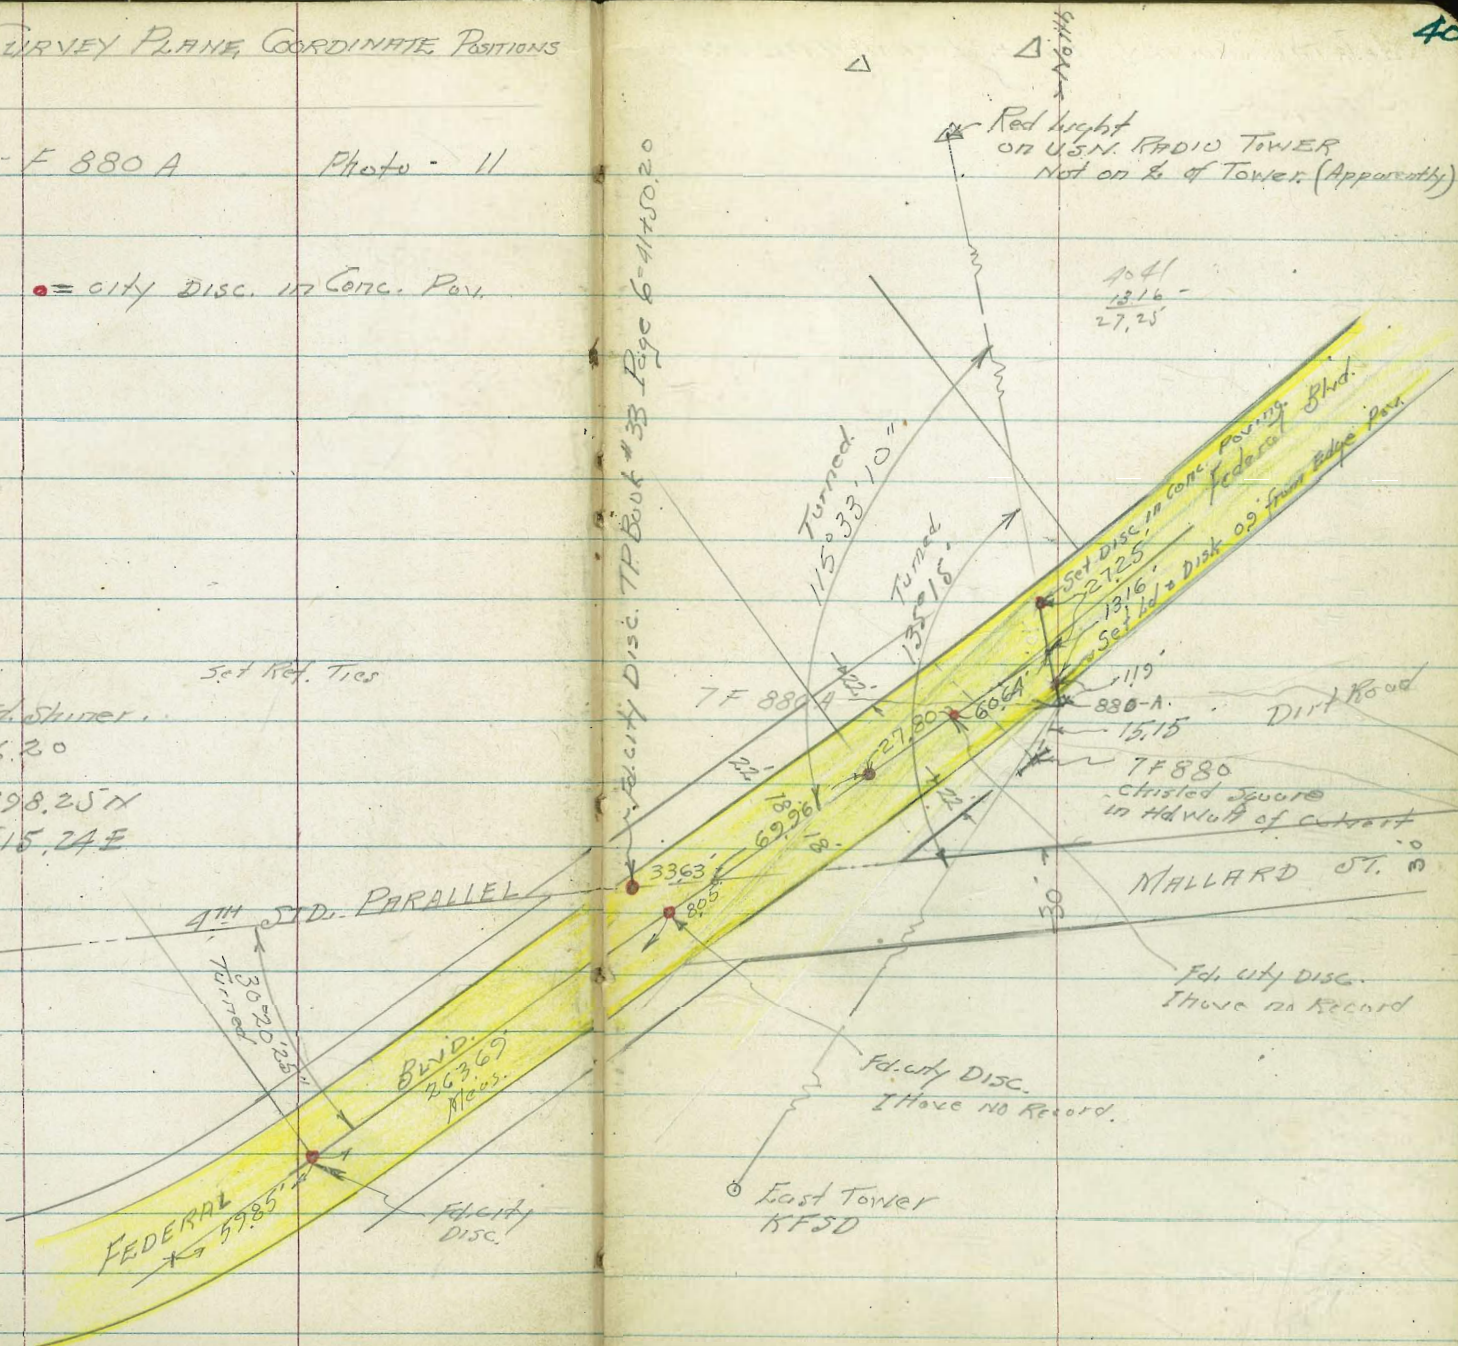 SURVEY PLANE COORDINATE POSITIONS
40
- F 880 A Photo - 11
= City Disc. in Conc. Pav.
Set Ref. Ties
d. Shiner.
.20
98.25 N
15.24 E
4TH STD. PARALLEL
30°20'25"
Turned
BLVD.
263.69'
Meas.
FEDERAL
59.85'
Fd. City
Disc.
Fd. City Disc. T.P. Book #33 Page 6 = 41+50.20
North
Red Light
on U.S.N. RADIO TOWER
Not on ℄ of Tower. (Apparently)
40 41
13.16 -
27.25
Turned
115°33'10"
Turned
135°15'
Set Disc in Conc. Paving.
Federal Blvd.
27.25'
13.16'
Set Ld & Disk 0.9' from Edge Pav.
7F 880 A
22'
22'
27.80
60.64'
1.19'
880-A.
15.15
7F 880
Chisled Square
in Hd Wall of Culvert
Dirt Road
22'
18'
69.96'
18'
33.63'
8.05'
MALLARD ST.
30'
30'
Fd. City Disc.
I Have no Record
Fd. City Disc.
I Have No Record.
East Tower
KFSD